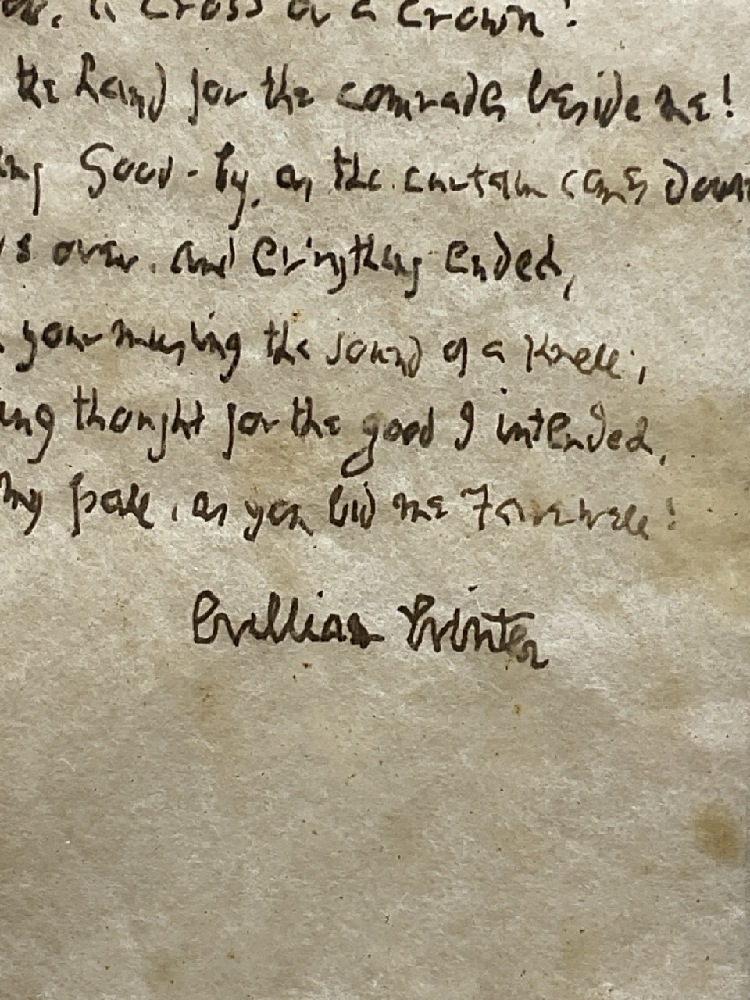 a Cross or a Crown!
the hand for the comrade beside me!
Good-by, as the curtain comes down
's over, and everything ended,
your musing the sound of a knell,
thought for the good I intended,
my pall, as you bid me Farewell!
William Winter